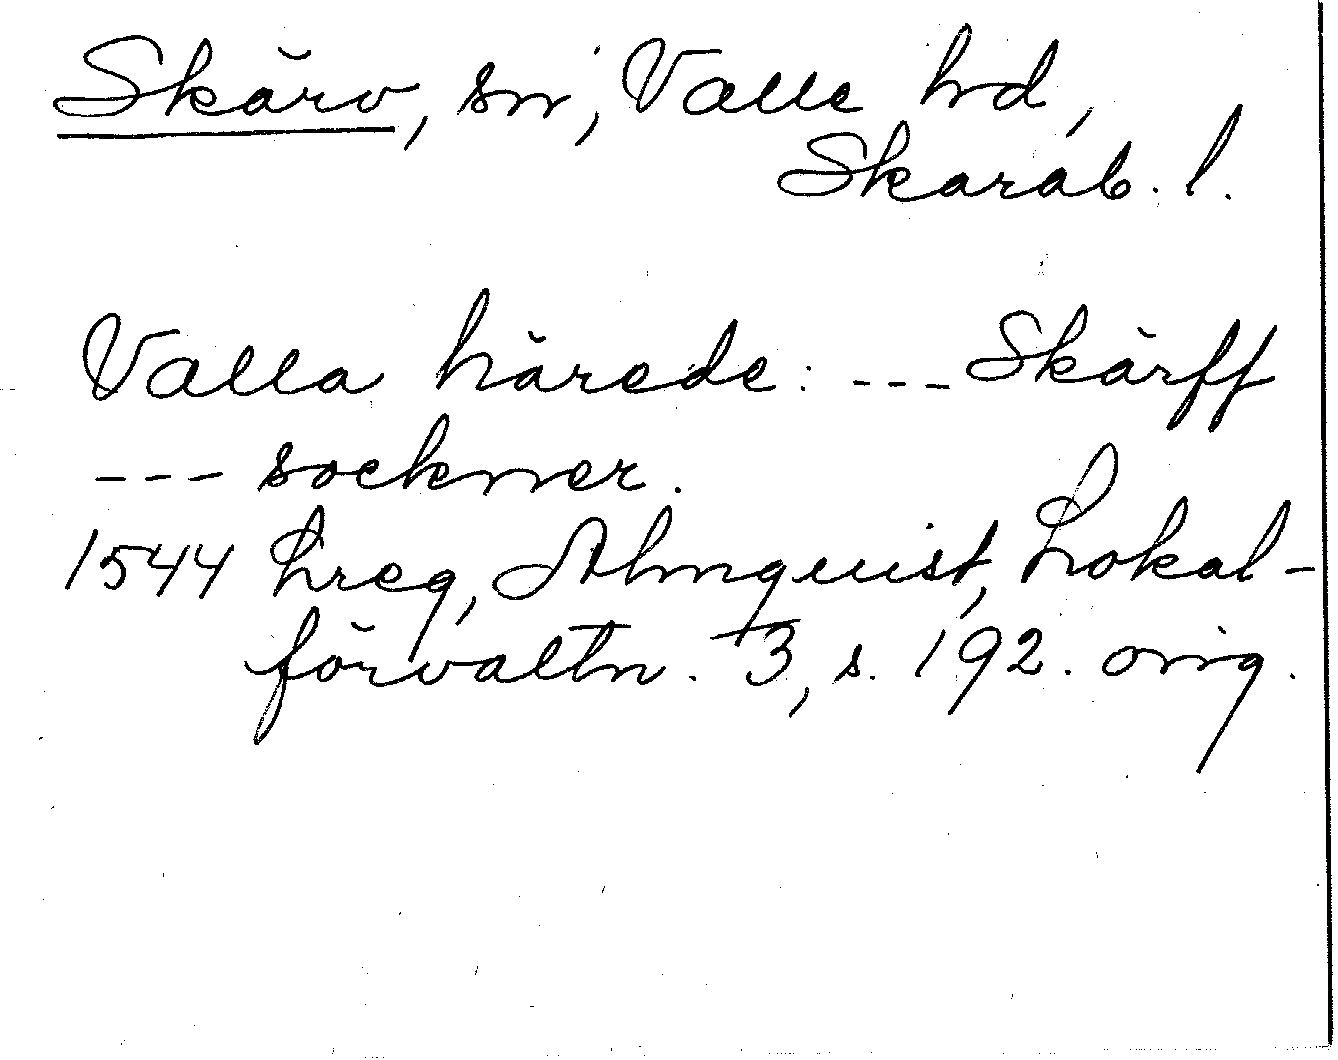 Skärv, sn, Valle hd,
Skarab. l.
Valla härede: --- Skärff
--- sockner.
1544 Lreg, Almquist, Lokal-
förvaltn. 3, s. 192. orig.